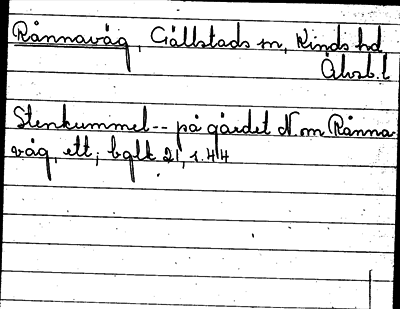 Rånnaväg, Gällstads sn, Kinds hd
Älvsb. l
Stenkummel -- på gärdet N om Rånna
väg, ett; bglt 21, s. 44